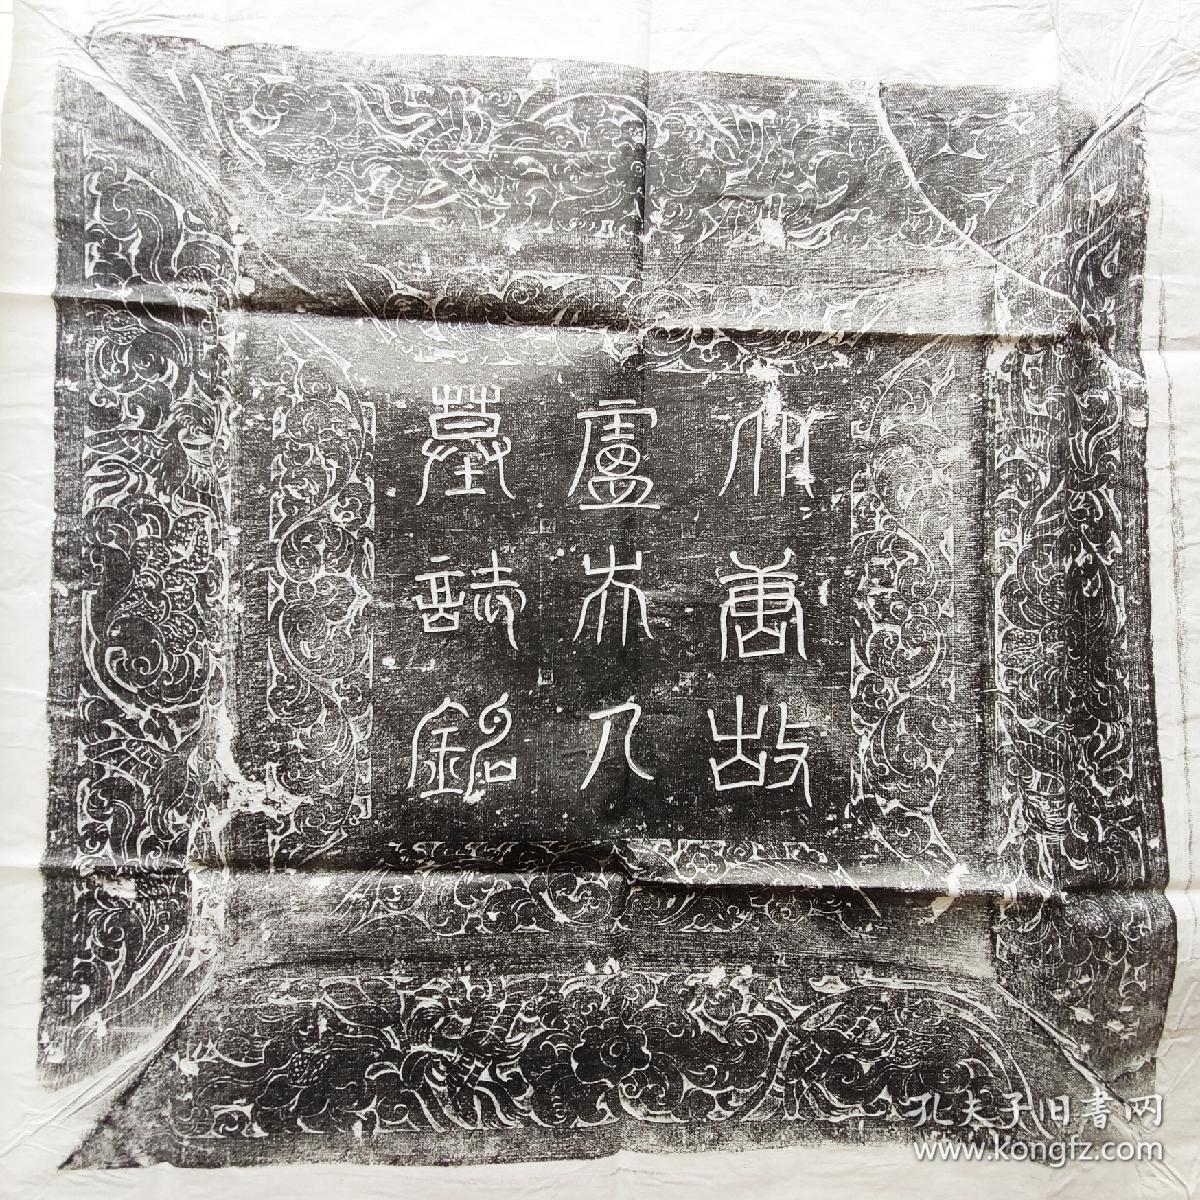 大唐故
盧夫人
墓誌銘
孔夫子旧书网
www.kongfz.com